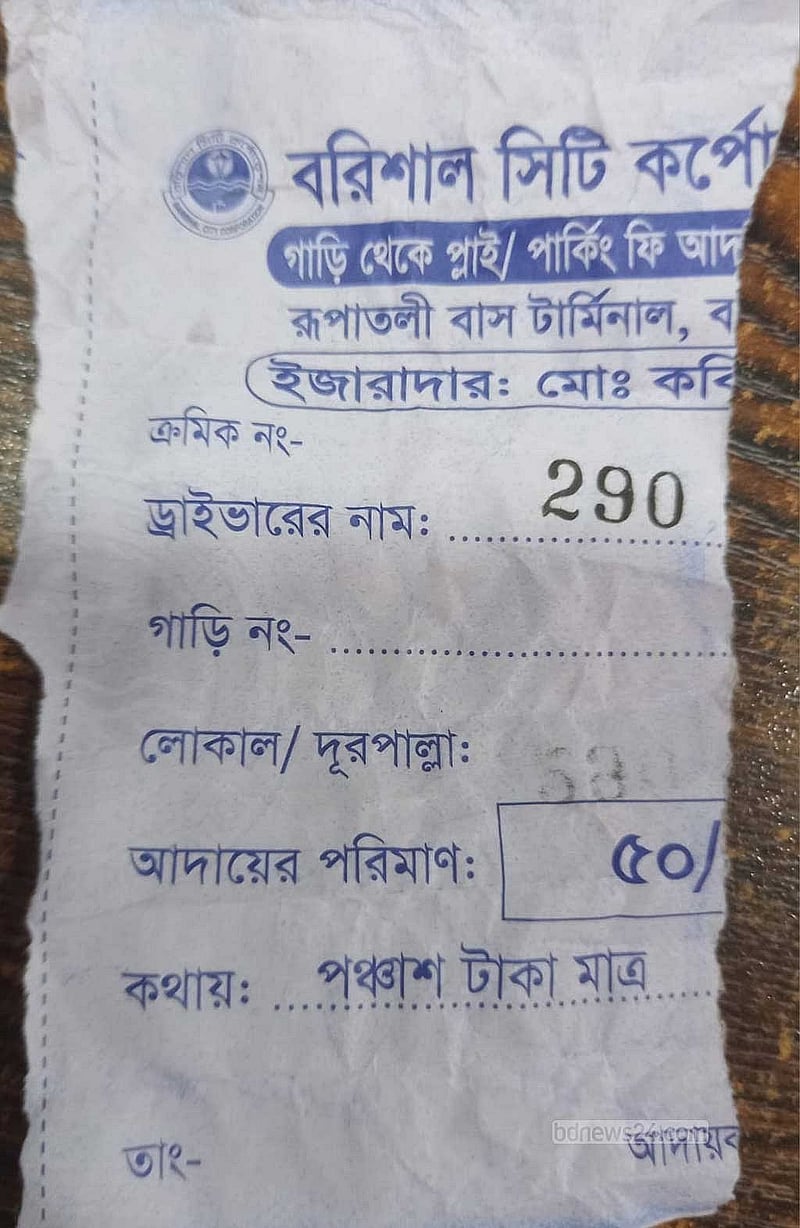 বরিশাল সিটি কর্পো
গাড়ি থেকে প্লাই/ পার্কিং ফি আদ
রূপাতলী বাস টার্মিনাল, ব
ইজারাদার: মোঃ কবি
ক্রমিক নং-
290
ড্রাইভারের নাম: ........................
গাড়ি নং- ........................
লোকাল/ দূরপাল্লা:
আদায়ের পরিমাণ: ৫০/
কথায়: ... পঞ্চাশ টাকা মাত্র ......
bdnews24.com
তাং- আদায়ক